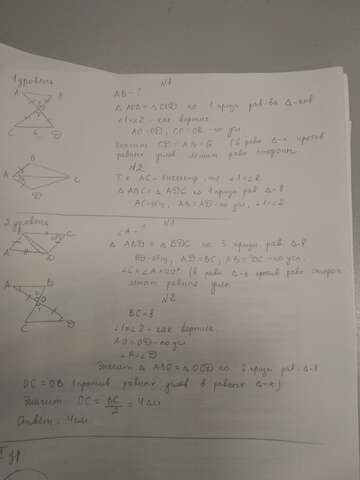 1 уровень
N1
AB - ?
△ AOB = △ COD по 1 призн рав-ва △-ков
∠1 = ∠2 - как вертик
AO = OD, CO = OB - по усл
Значит CD = AB = 6 (в равн △-х против
равных углов лежат равн стороны
N2
Т.к AC - биссектр, то ∠1 = ∠2
△ ABC = △ ADC по 1 призн рав △-в
AC - общ, AB = AD - по усл, ∠1 = ∠2
2 уровень
N1
∠A - ?
△ ABD = △ BDC по 3 призн. рав △-в
BD - общ, AD = BC, AB = DC - по усл.
(в равн △-х против равн сторон
лежат равные углы
N2
BC = 8
∠1 = ∠2 - как вертик.
AO = OD - по усл
∠A = ∠D
Значит △ ABO = △ OCD по 2 призн рав △-в
OC = OB (против равных углов в равных △-х)
Значит OC = BC/2 = 4 см
Ответ: 4 см.
A
B
C
D
6
A
B
C
D
A
D
A
B
O
C
D